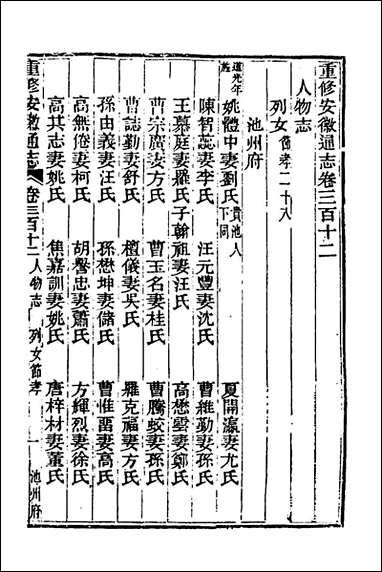 重修安徽通志卷三百十二
人物志
列女 節孝二十八
池州府
道光年 姚體中妻劉氏 貴池人下同 夏開瀛妻尤氏
陳智蕊妻李氏 汪元豐妻沈氏 曹維勤妻孫氏
王慕庭妻羅氏 子翰祖妻汪氏 高懋雲妻鄭氏
曹宗廣妻方氏 曹玉名妻桂氏 曹騰蛟妻孫氏
曹誌勤妻舒氏 檀儀妻吳氏 羅克福妻方氏
孫由義妻汪氏 孫懋坤妻儲氏 曹惟醤妻高氏
高無倦妻柯氏 胡譽忠妻蕭氏 方輝烈妻徐氏
高其志妻姚氏 焦嘉訓妻姚氏 唐梓材妻董氏
重修安徽通志 卷三百十二 人物志 列女節孝 一 池州府